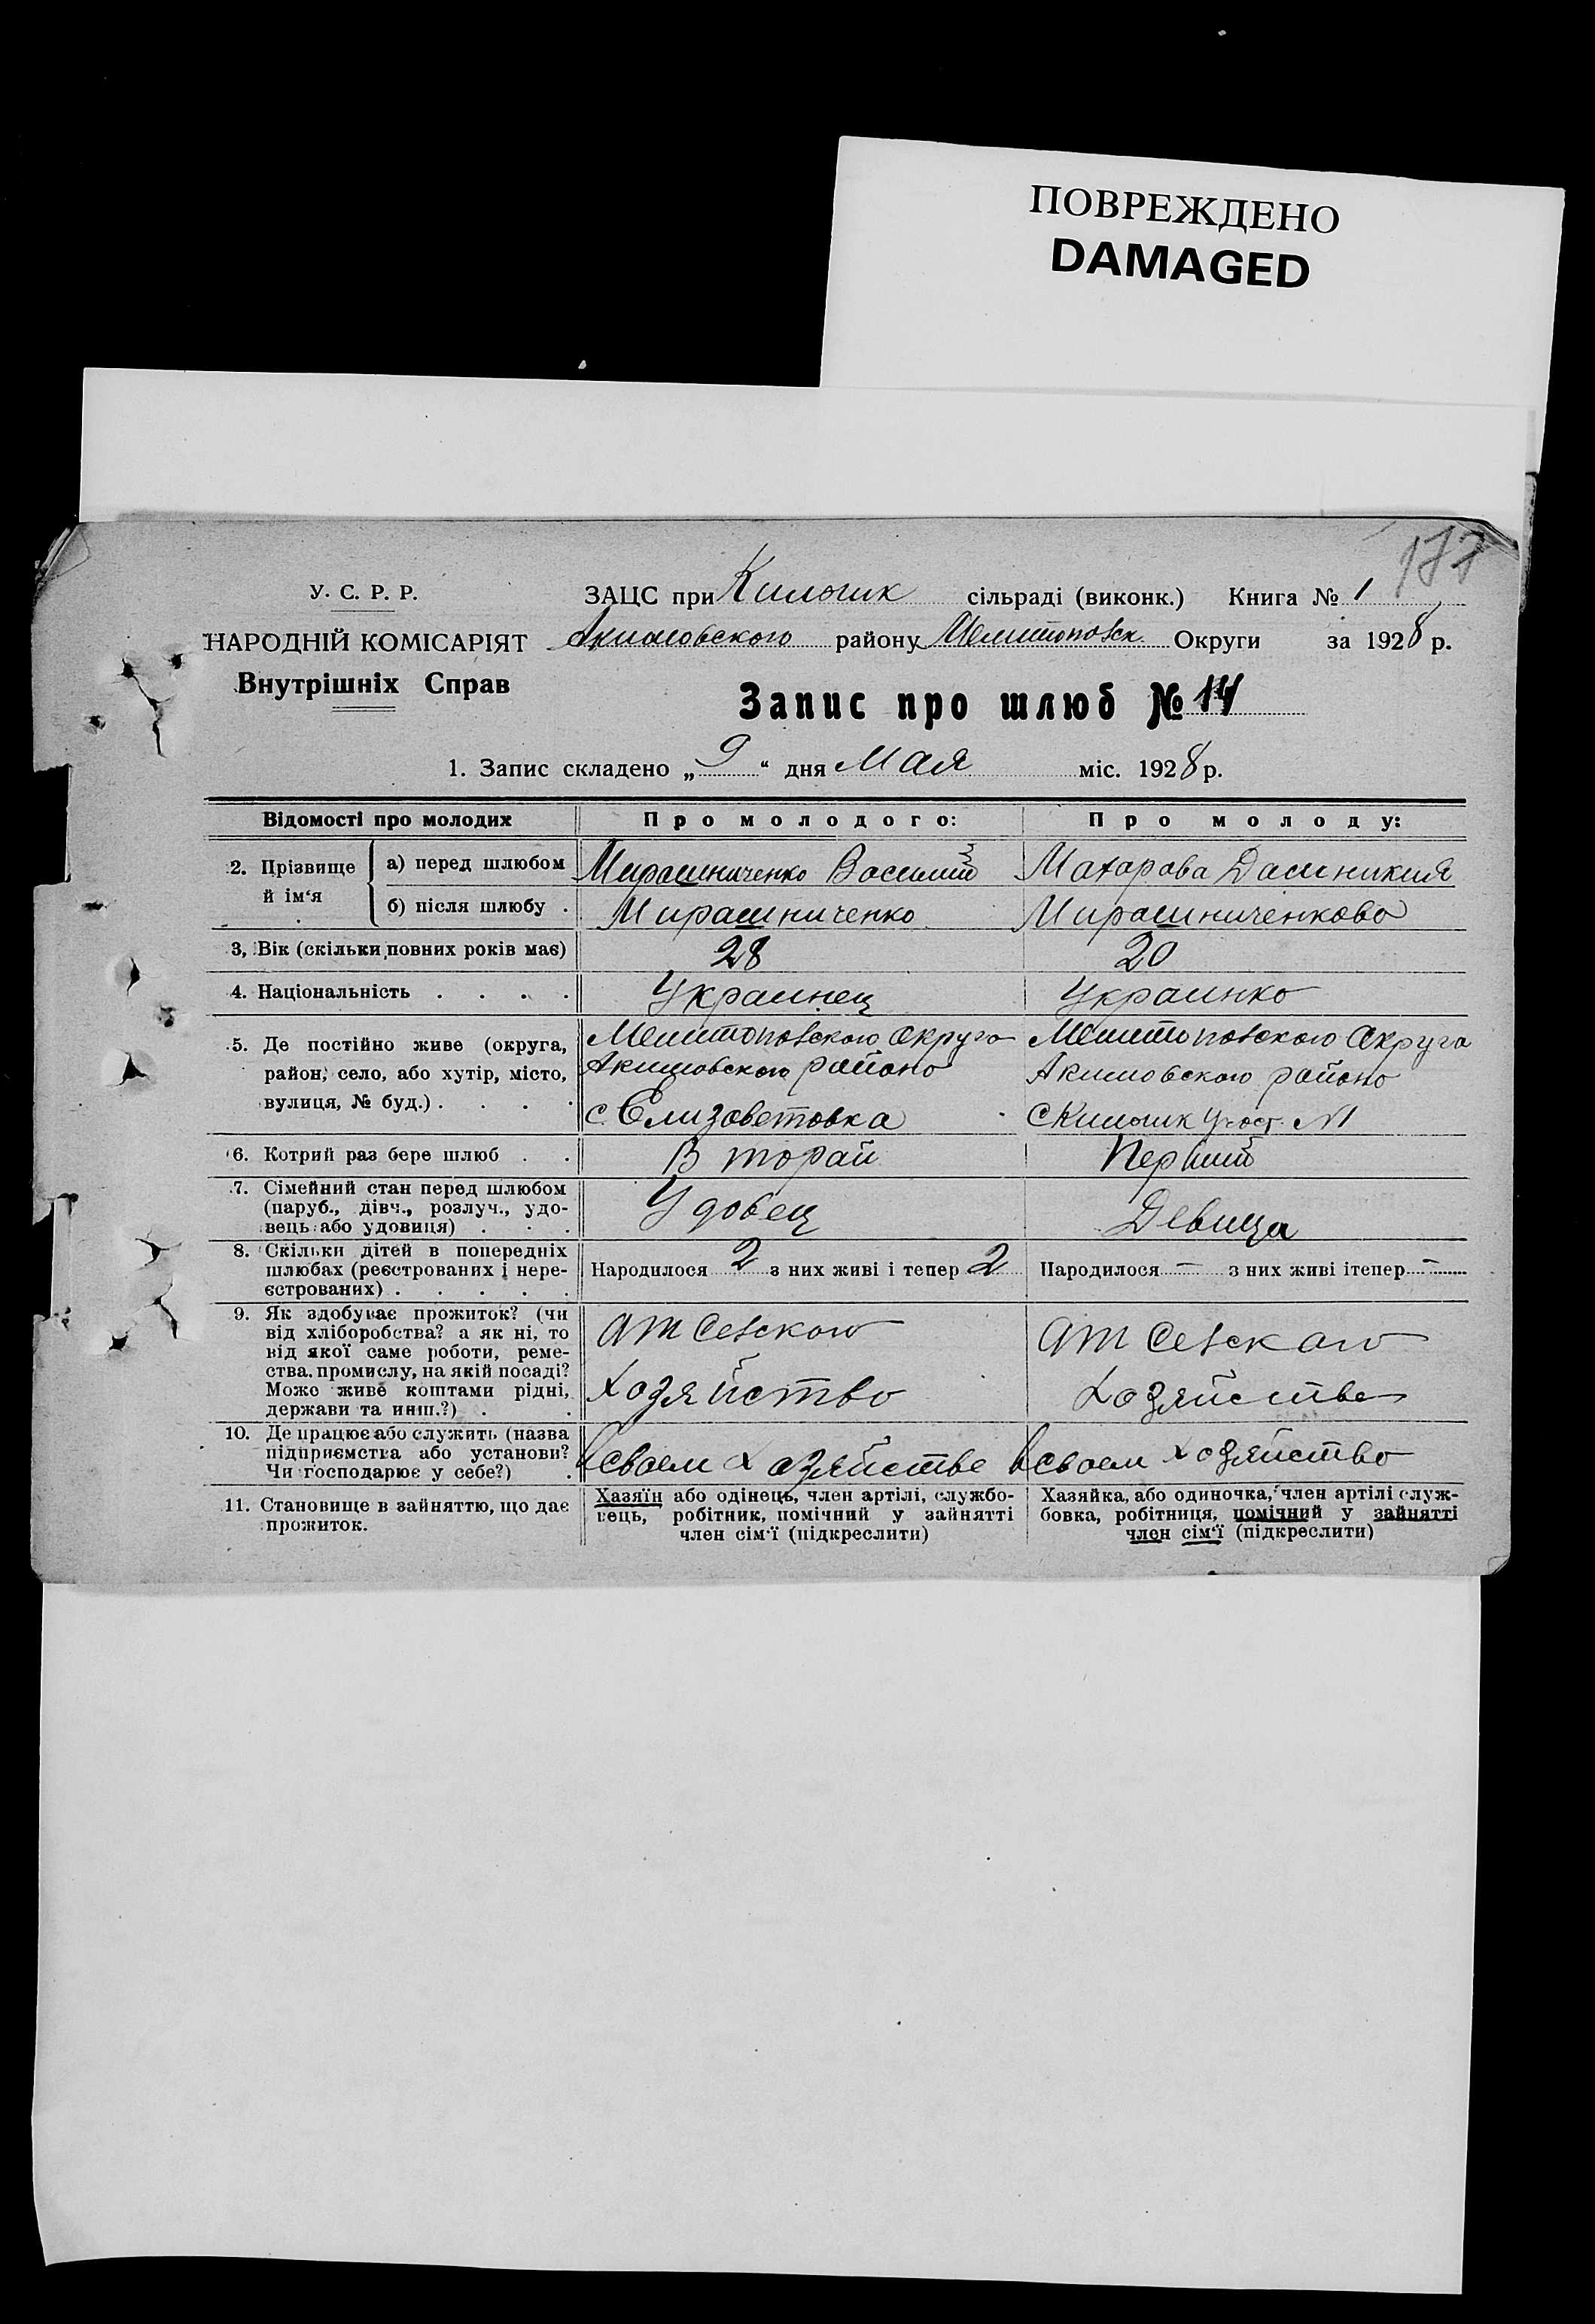 ПОВРЕЖДЕНО
DAMAGED
177
У. С. Р. Р.
ЗАЦС при Килогик сільраді (виконк.) Книга № 1
НАРОДНІЙ КОМІСАРІЯТ
Акимовского району Мелитоповск. Округи за 1928 р.
Внутрішніх Справ
Запис про шлюб № 14
1. Запис складено „9“ дня Мая міс. 1928 р.
Відомості про молодих
Про молодого:
Про молоду:
2. Прізвище й ім‘я
а) перед шлюбом
Мирашниченко Василий
Махарова
б) після шлюбу .
Мирашниченко
Мирашниченкова
3, Вік (скільки повних років має)
28
20
4. Національність . . . .
Украинец
Украинка
5. Де постійно живе (округа,
район, село, або хутір, місто,
вулиця, № буд.) . . . .
Мелитоповского Округа
Акимовского района
с. Елизаветовка
Мелитоповского Округа
Акимовского района
с Килогик Участ. N1
6. Котрий раз бере шлюб . .
Второй
Первий
7. Сімейний стан перед шлюбом
(паруб., дівч., розлуч., удо-
вець або удовиця) . . .
Удовец
Девица
8. Скільки дітей в попередніх
шлюбах (реєстрованих і нере-
єстрованих) . . . . .
Народилося 2 з них живі і тепер 2
Народилося — з них живі і тепер —
9. Як здобуває прожиток? (чи
від хліборобства? а як ні, то
від якої саме роботи, реме-
ства, промислу, на якій посаді?
Може живе коштами рідні,
держави та инш.?) . .
ат Севского
Хозяйства
ат Севского
Хозяйства
10. Де працює або служить (назва
підприємства або установи?
Чи господарює у себе?) .
в своем хозяйстве
в своем хозяйстве
11. Становище в зайняттю, що дає
прожиток.
Хазяїн або одінець, член артілі, службо-
вець, робітник, помічний у зайнятті
член сім‘ї (підкреслити)
Хазяйка, або одиночка, член артілі служ-
бовка, робітниця, помічний у зайнятті
член сім‘ї (підкреслити)